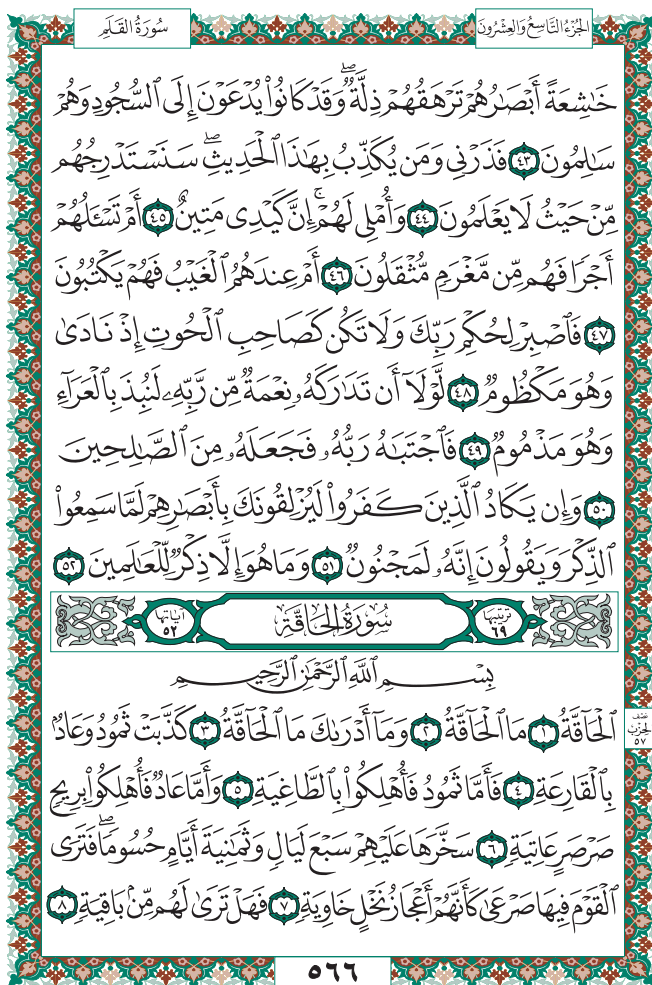 سُورَةُ القَلَمِ
الجُزْءُ التَّاسِعُ وَالعِشْرُونَ
خَٰشِعَةً أَبۡصَٰرُهُمۡ تَرۡهَقُهُمۡ ذِلَّةٞۖ وَقَدۡ كَانُواْ يُدۡعَوۡنَ إِلَى ٱلسُّجُودِ وَهُمۡ
سَٰلِمُونَ ٤٣ فَذَرۡنِي وَمَن يُكَذِّبُ بِهَٰذَا ٱلۡحَدِيثِۖ سَنَسۡتَدۡرِجُهُم
مِّنۡ حَيۡثُ لَا يَعۡلَمُونَ ٤٤ وَأُمۡلِي لَهُمۡۚ إِنَّ كَيۡدِي مَتِينٌ ٤٥ أَمۡ تَسۡـَٔلُهُمۡ
أَجۡرٗا فَهُم مِّن مَّغۡرَمٖ مُّثۡقَلُونَ ٤٦ أَمۡ عِندَهُمُ ٱلۡغَيۡبُ فَهُمۡ يَكۡتُبُونَ
٤٧ فَٱصۡبِرۡ لِحُكۡمِ رَبِّكَ وَلَا تَكُن كَصَاحِبِ ٱلۡحُوتِ إِذۡ نَادَىٰ
وَهُوَ مَكۡظُومٞ ٤٨ لَّوۡلَآ أَن تَدَٰرَكَهُۥ نِعۡمَةٞ مِّن رَّبِّهِۦ لَنُبِذَ بِٱلۡعَرَآءِ
وَهُوَ مَذۡمُومٞ ٤٩ فَٱجۡتَبَٰهُ رَبُّهُۥ فَجَعَلَهُۥ مِنَ ٱلصَّٰلِحِينَ
٥٠ وَإِن يَكَادُ ٱلَّذِينَ كَفَرُواْ لَيُزۡلِقُونَكَ بِأَبۡصَٰرِهِمۡ لَمَّا سَمِعُواْ
ٱلذِّكۡرَ وَيَقُولُونَ إِنَّهُۥ لَمَجۡنُونٞ ٥١ وَمَا هُوَ إِلَّا ذِكۡرٞ لِّلۡعَٰلَمِينَ ٥٢
تَرتيبُهَا ٦٩ سُورَةُ الحَاقَّةِ آيَاتُهَا ٥٢
بِسۡمِ ٱللَّهِ ٱلرَّحۡمَٰنِ ٱلرَّحِيمِ
ٱلۡحَآقَّةُ ١ مَا ٱلۡحَآقَّةُ ٢ وَمَآ أَدۡرَىٰكَ مَا ٱلۡحَآقَّةُ ٣ كَذَّبَتۡ ثَمُودُ وَعَادُۢ
نصف الحزب ٥٧
بِٱلۡقَارِعَةِ ٤ فَأَمَّا ثَمُودُ فَأُهۡلِكُواْ بِٱلطَّاغِيَةِ ٥ وَأَمَّا عَادٞ فَأُهۡلِكُواْ بِرِيحٖ
صَرۡصَرٍ عَاتِيَةٖ ٦ سَخَّرَهَا عَلَيۡهِمۡ سَبۡعَ لَيَالٖ وَثَمَٰنِيَةَ أَيَّامٍ حُسُومٗاۖ فَتَرَى
ٱلۡقَوۡمَ فِيهَا صَرۡعَىٰ كَأَنَّهُمۡ أَعۡجَازُ نَخۡلٍ خَاوِيَةٖ ٧ فَهَلۡ تَرَىٰ لَهُم مِّنۢ بَاقِيَةٖ ٨
٥٦٦